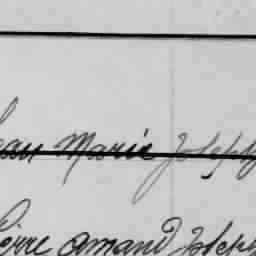 Jean Marie Joseph
Pierre Amand Joseph